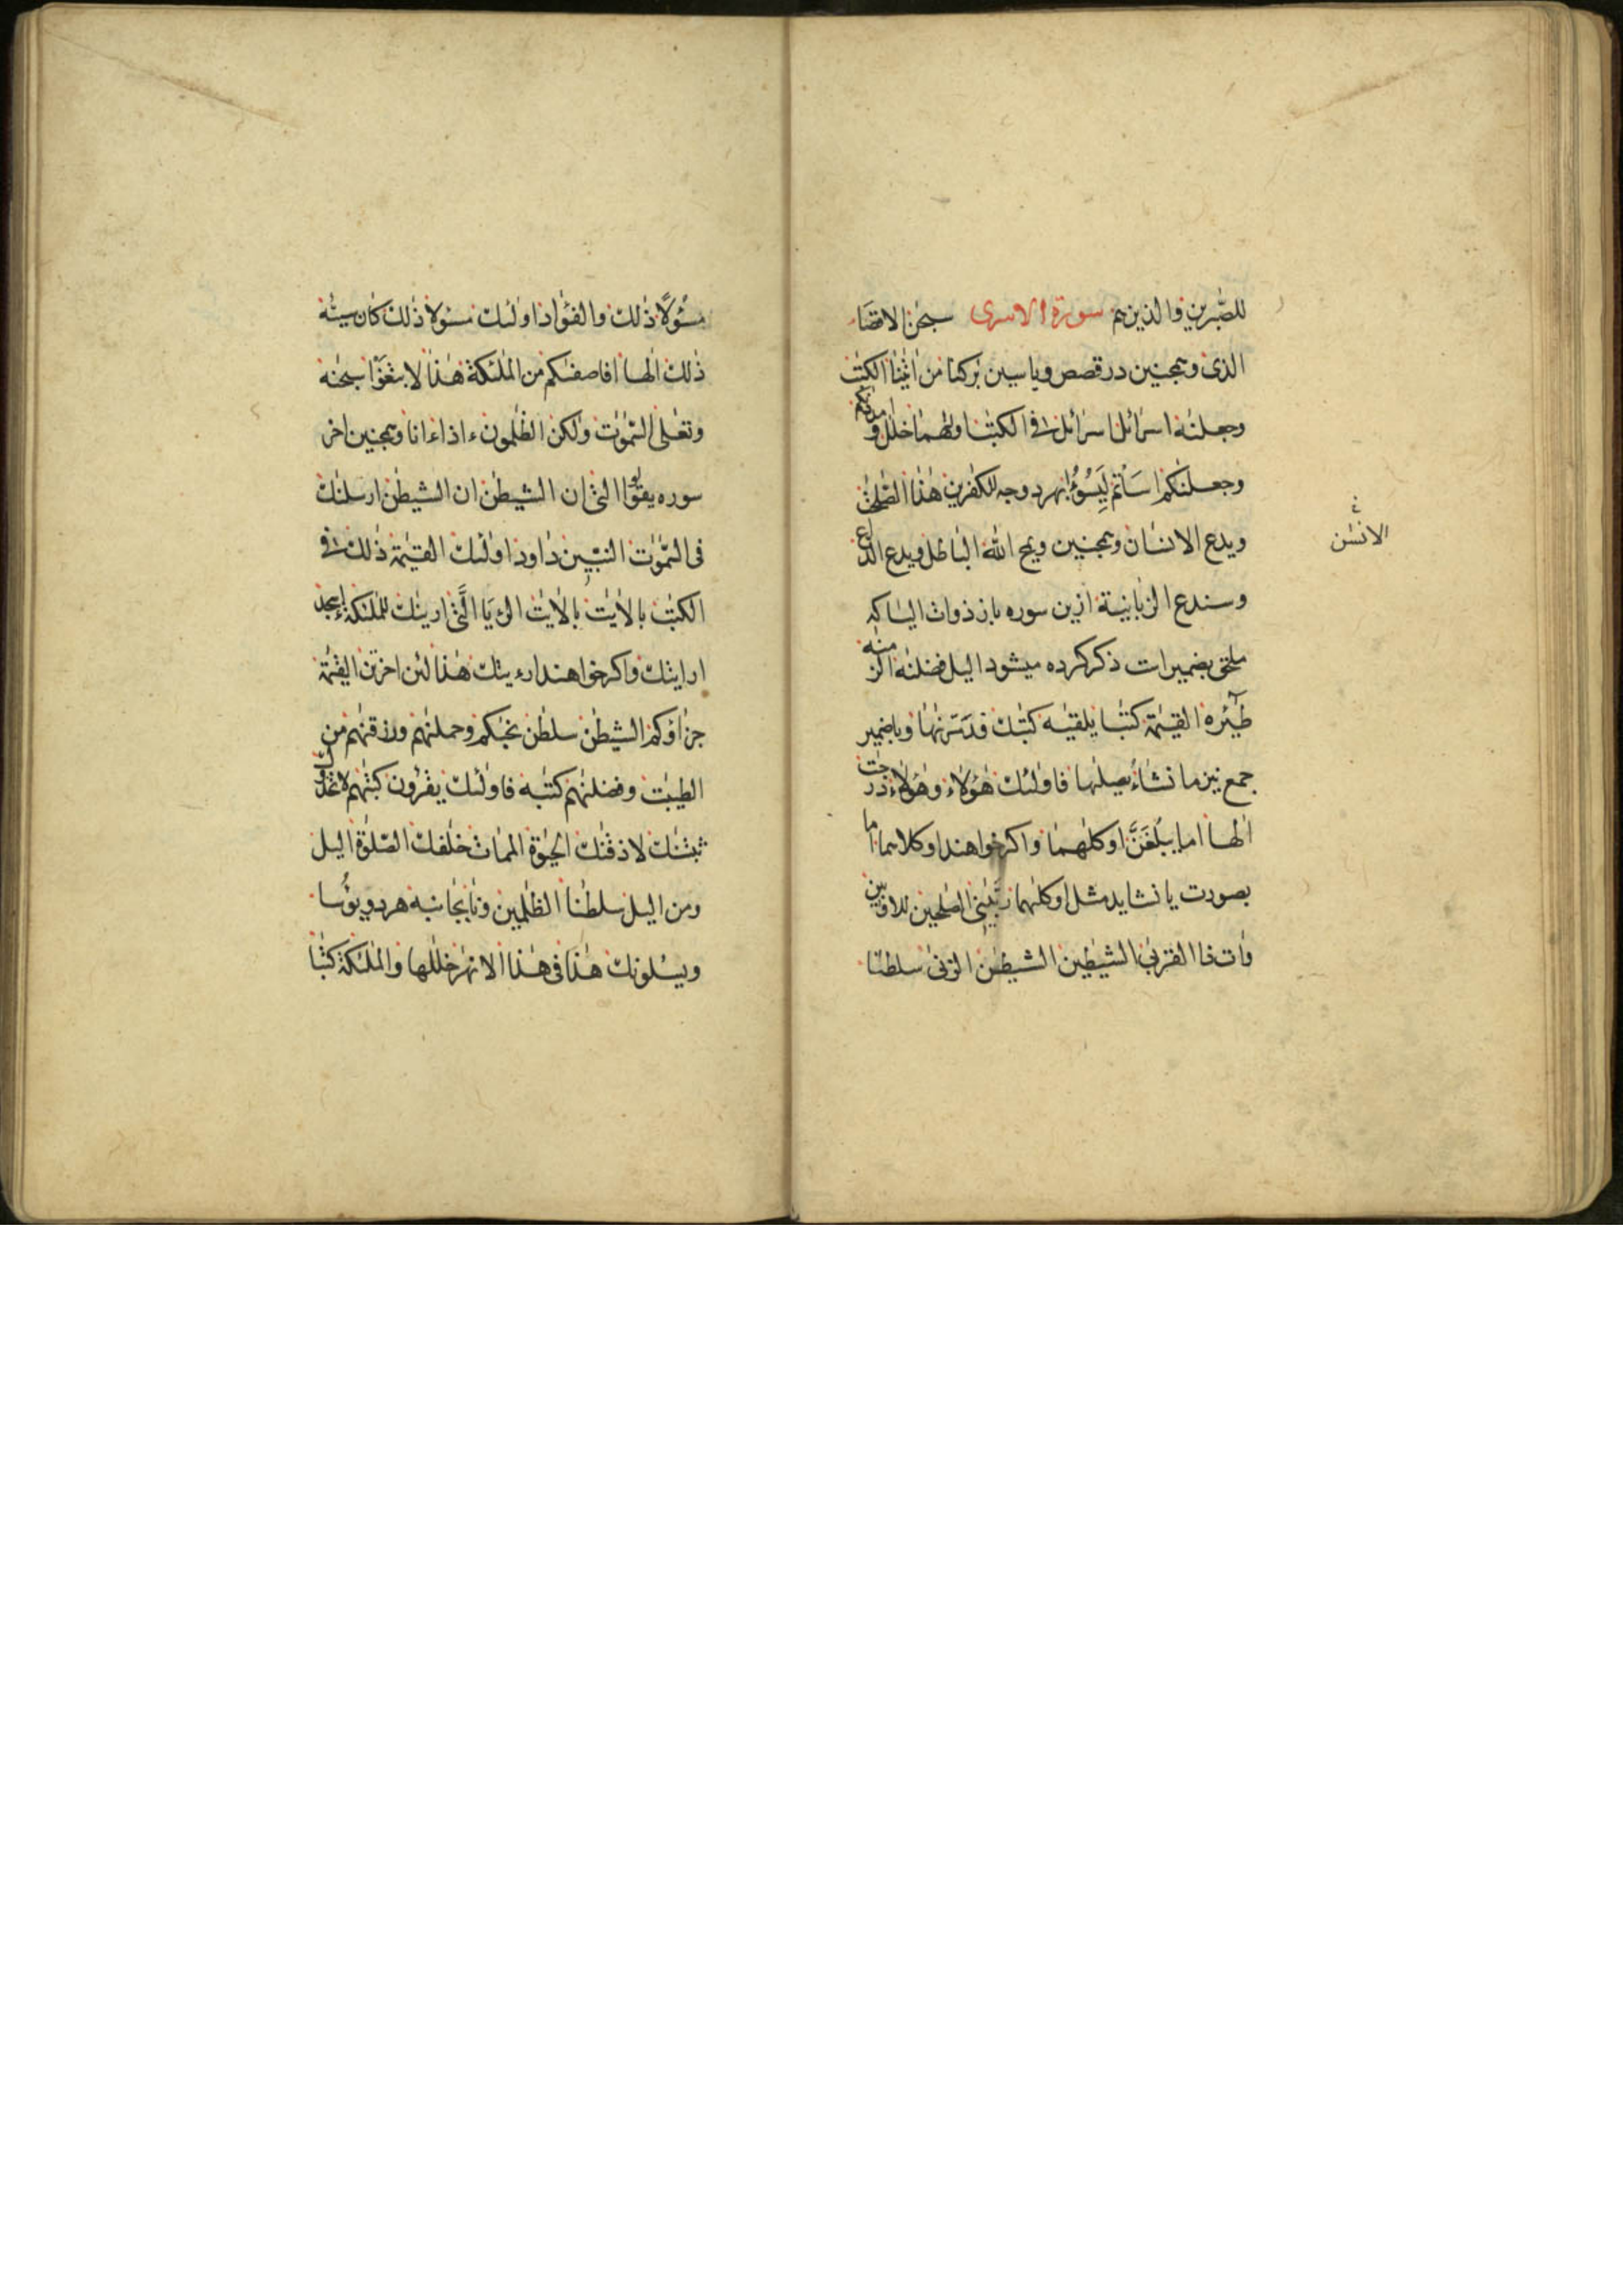 للصّٰبرين والذين هم سورة الاسرى سبحٰن الاقصَا
الذى وهمچنين در قصص وياسين بٰركنا من اٰيٰتنا الكتٰب
وجعلنٰه اسرائل اسرائل فى الكتٰب اولٰهما خلٰل وامددنٰكم
وجعلنٰكم اسَاْتم لِيَسُوٗٔا بهر دو وجه للكٰفرين هٰذا الصّٰلحٰت
ويدع الانسان وهمچنين ويمح اللّٰه الباطل ويدع الدّاع
وسندع الزبانية ازين سوره باز ذوات اليا كه
ملحق بضميرات ذكر كرده ميشود اليل فصلنٰه الزمنٰه
طٰٓئره القيٰمة كتٰبا يلقيٰه كتٰبك فدمّرنٰها وبا ضمير
جمع نيز ما نشاء يصلٰها فاولٰئك هٰؤلاء وهٰؤلاء درجٰت
الٰها اما يبلُغَنَّ او كلٰهما واكر خواهند او كلاهما اما
بصورت يا نشايد مثل او كلٰهما ربّيٰنى الصٰلحين للاوّٰبين
واٰت ذا القربٰى الشيٰطين الشيطٰن الزنٰى سلطٰنا
الانسٰن
مسُٔولًا ذٰلك والفؤاد اولٰئك مسٔولا ذٰلك كان سيّئه
ذٰلك الٰها افاصفٰىكم من الملٰئكة هٰذا لابتغَوْا سبحٰنه
وتعٰلى السّمٰوٰت ولٰكن الظٰلمون ءاذا ءانا وهمچنين اخر
سوره يقولوا التى ان الشيطٰن ان الشيطٰن ارسلنٰك
فى السّمٰوٰت النبيّين داود اولٰئك القيٰمة ذٰلك فى
الكتٰب بالاٰيٰت بالاٰيٰت الرءيَا الَّتى ارينٰك للملٰئكة ءاسجد
ارايتك واكر خواهند ارءيتك هٰذا لئن اخرتن القيٰمة
جزاؤكم الشيطٰن سلطٰن نجّٰىكم وحملنٰهم ورزقنٰهم من
الطيبٰت وفضلنٰهم كتٰبه فاولٰئك يقرٔون كتٰبهم لاتخذوك
ثبتنٰك لاذقنٰك الحيٰوة الممات خلٰفك الصّلوٰة اليل
ومن اليل سلطٰنا الظٰلمين ونٰا بجانبه هر دو يؤُسا
ويسٔلونك هٰذا فى هٰذا الانهٰر خلٰلها والملٰئكة كتٰبا